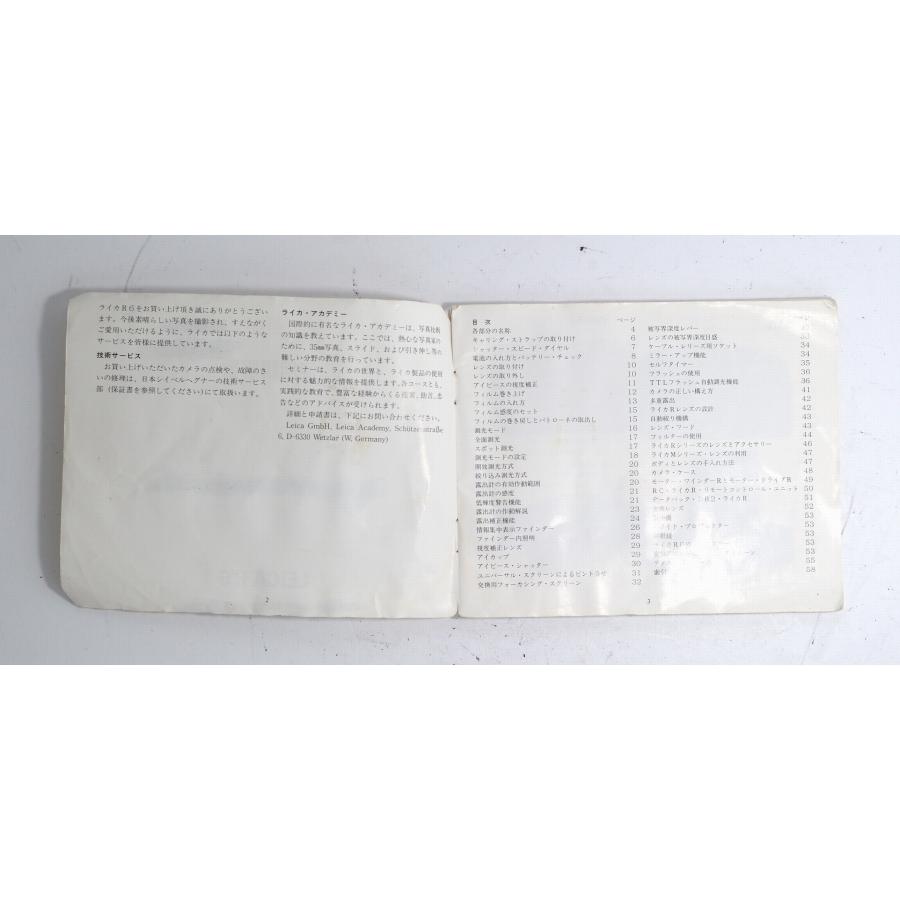 ライカR6をお買い上げ頂き誠にありがとうござい
ます。今後素晴らしい写真を撮影され、すえながく
ご愛用いただけるように、ライカでは以下のような
サービスを皆様に提供しています。
技術サービス
お買い上げいただいたカメラの点検や、故障のさ
いの修理は、日本シイベルヘグナーの技術サービス
部(保証書を参照してください)にて取扱います。
2
ライカ・アカデミー
国際的に有名なライカ・アカデミーは、写真技術
の知識を教えています。ここでは、熱心な写真家の
ために、35mm写真、スライド、および引き伸し等の
難しい分野の教育を行っています。
セミナーは、ライカの世界と、ライカ製品の使用
に対する魅力的な情報を提供します。各コースとも、
実践的な教育で、豊富な経験からくる提案、助言、忠
告などのアドバイスが受けられます。
詳細と申請書は、下記にお問い合わせください。
Leica GmbH, Leica Academy, Schützenstraße
6, D-6330 Wetzlar (W, Germany)
目 次 ページ
各部分の名称 4
キャリング・ストラップの取り付け 6
シャッター・スピード・ダイヤル 7
電池の入れ方とバッテリー・チェック 8
レンズの取り付け 10
レンズの取り外し 10
アイピースの視度補正 11
フィルム巻き上げ 12
フィルムの入れ方 13
フィルム感度のセット 15
フィルムの巻き戻しとパトローネの取出し 15
測光モード 16
全面測光 17
スポット測光 17
測光モードの設定 18
開放測光方式 20
絞り込み測光方式 20
露出計の有効作動範囲 20
露出計の感度 21
低輝度警告機能 21
露出計の作動解説 23
露出補正機能 24
情報集中表示ファインダー 26
ファインダー内照明 28
視度補正レンズ 29
アイカップ 29
アイピース・シャッター 30
ユニバーサル・スクリーンによるピント合せ 31
交換用フォーカシング・スクリーン 32
被写界深度レバー 33
レンズの被写界深度目盛 33
ケーブル・レリーズ用ソケット 34
ミラー・アップ機能 34
セルフタイマー 35
フラッシュの使用 36
TTLフラッシュ自動調光機能 36
カメラの正しい構え方 41
多重露出 42
ライカRレンズの設計 42
自動絞り機構 43
レンズ・フード 43
フィルターの使用 44
ライカRシリーズのレンズとアクセサリー 46
ライカMシリーズ・レンズの利用 47
ボディとレンズの手入れ方法 47
カメラ・ケース 48
モーター・ワインダーRとモーター・ドライブR 49
RC・ライカR・リモートコントロール・ユニット 50
51
交換レンズ 52
53
53
53
53
55
索引 58
3